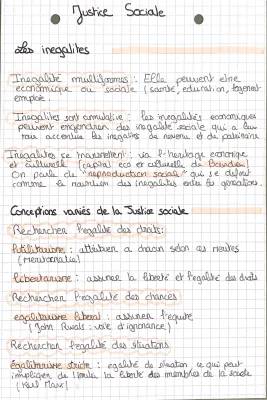 Justice Sociale
Les inegalites
Inegalité multiformes : Elle peuvent etre
economique ou sociale (santé, education, logement
emploi.
Inegalités sont cumulative : les inegalités economiques
peuvent engendrer des inegalité sociale qui a leur
tour accentue les inegalités de revenu et du patrimoine
Inegalites se transmettent : via l'heritage economique
et culturelle (capital eco et culturelle de Bourdieu)
On parle de "reproduction sociale" qui se definit
comme le maintien des inegalités entre les generations.
Conceptions variés de la Justice sociale
Rechercher l'egalité des droits:
Utilitarisme : attribuer a chacun selon ses merites
(Meritocratie)
Libertarisme : assurer la liberté et l'egalité des droits
Rechercher l'egalité des chances
egalitarisme liberal : assurer l'equité
(John Rawls : voile d'ignorance)
Rechercher l'egalité des situations
Égalitarisme stricte : egalité de situation ce qui peut
impliquer de limite la liberté des membres de la societe
(Karl Marx)